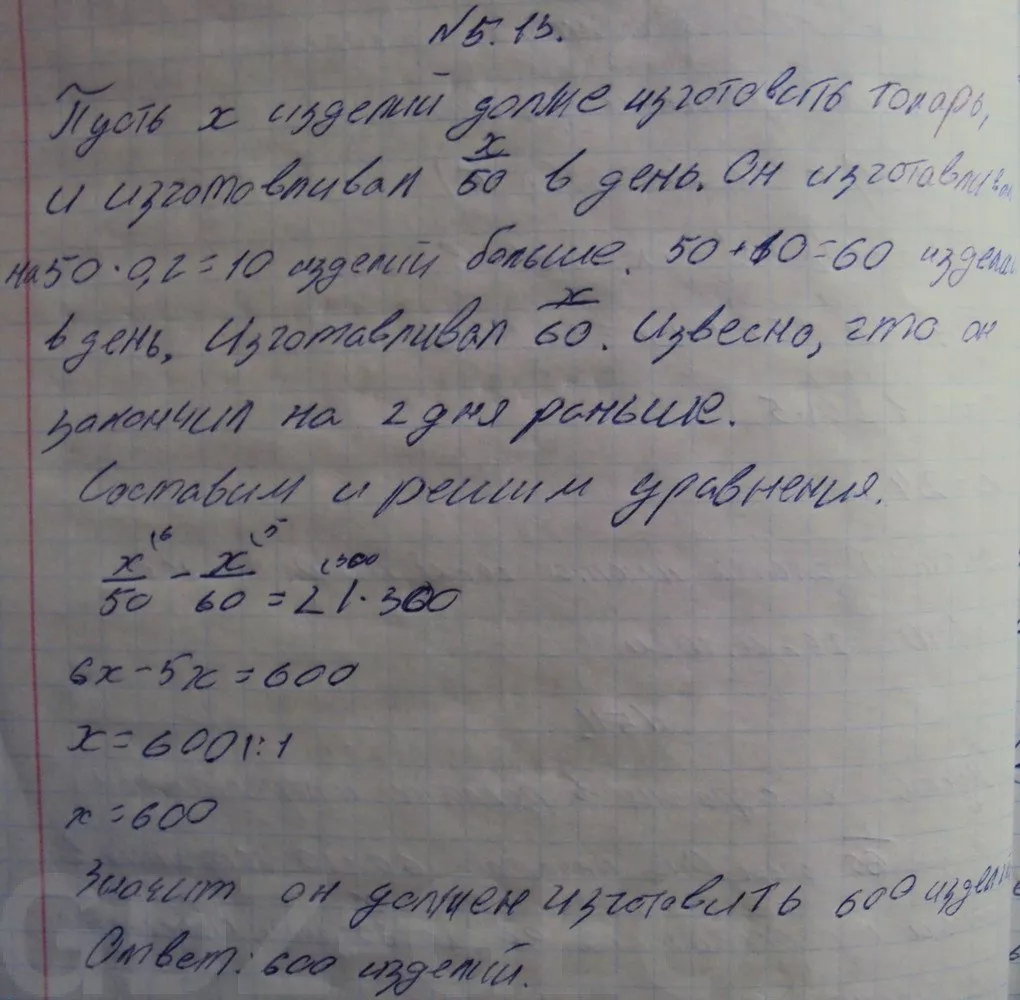 №5.13.
Пусть x изделий долже изготовсть токарь,
и изготовливал x/50 в день. Он изготавливал
на 50·0,2=10 изделий больше. 50+10=60 издели
в день, Изготавливал x/60. Извесно, что он
закончил на 2 дня раньше.
Составим и решим уравнения.
x/50 (6 - x/60 (5 = 2 (300 |·300
6x-5x=600
x=600|:1
x=600
Значит он должен изготовлть 600 изделий
Ответ: 600 изделий.